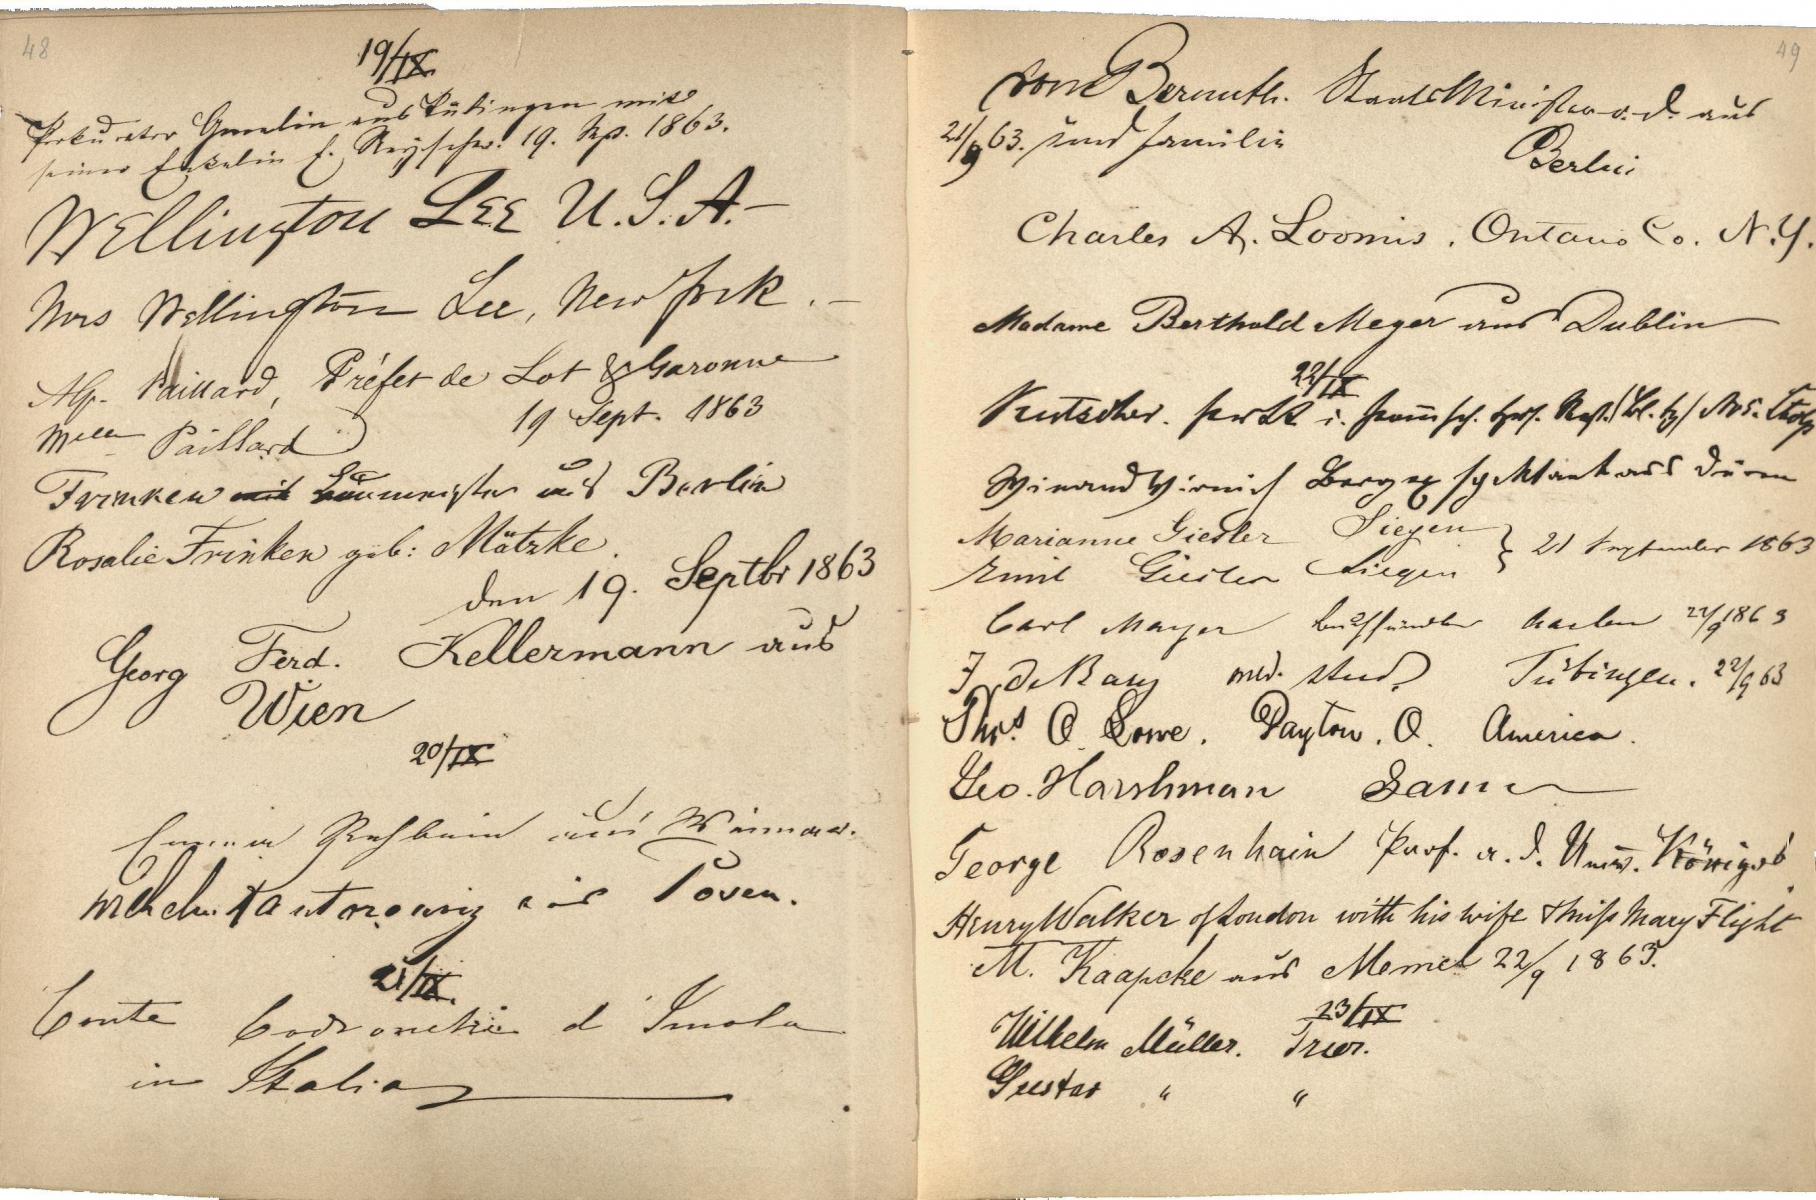 48
19/IX
Prokurator Gmelin aus Tübingen mit
seiner Enkelin E. Reyscher. 19. Sep. 1863.
Wellington Lee U.S.A.–
Mrs Wellington Lee, New York. –
Alp. Paillard, Préfet de Lot & Garonne
Mlle Paillard 19 Sept. 1863
Frinken aus Berlin
Rosalie Frinken geb: Mätzke.
den 19. Septbr 1863
Georg Ferd. Kellermann aus
Wien
20/IX
Rehbein aus Weimar.
aus Posen.
21/IX.
Conte Codronchi d'Imola
in Italia
49
von Bernuth. Staats Minister a. d. aus
21/9 63. und Familie Berlin
Charles A. Loomis, Ontario Co. N.Y.
Madame Berthold Meyer aus Dublin
22/IX
Kutscher.
aus Düren
Marianne Giesler Siegen } 21 September 1863
Emil Giesler Siegen
Carl Mayer Aachen 22/9 1863
med. stud. Tübingen. 22/9 63
Thos. O. Lowe. Dayton. O. America.
Geo. Harshman Same
George Rosenhain Prof. a. d. Univ. Königsb
Henry Walker of London with his wife & Miss Mary Flight
M. Kaapcke aus Memel 22/9 1863.
23/IX
Wilhelm Müller. Trier.
Gustav " "